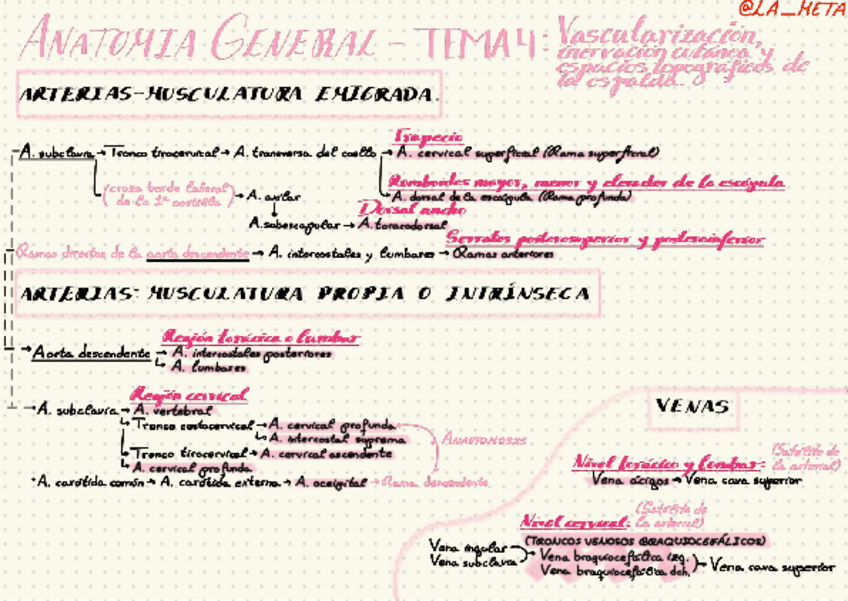 @LA_META
ANATOMIA GENERAL - TEMA 4: Vascularización,
inervación cutánea y
espacios topográficos de
la espalda.
ARTERIAS-MUSCULATURA EMIGRADA.
Trapecio
A. subclavia → Tronco tirocervical → A. transversa del cuello → A. cervical superficial (Rama superficial)
Romboides mayor, menor y elevador de la escápula
(cruza borde lateral
de la 1ª costilla) → A. axilar
A. dorsal de la escápula (Rama profunda)
Dorsal ancho
A. subescapular → A. toracodorsal
Serratos posterosuperior y posteroinferior
Ramas directas de la aorta descendente → A. intercostales y lumbares → Ramas anteriores
ARTERIAS: MUSCULATURA PROPIA O INTRÍNSECA
Región torácica o lumbar
→ Aorta descendente → A. intercostales posteriores
A. lumbares
Región cervical
→ A. subclavia → A. vertebral
Tronco costocervical → A. cervical profunda
A. intercostal suprema
Tronco tirocervical → A. cervical ascendente
A. cervical profunda
ANASTOMOSIS
A. carótida común → A. carótida externa → A. occipital → Rama descendente
VENAS
Nivel torácico y lumbar: (Satélite de
la arterial)
Vena ácigos → Vena cava superior
Nivel cervical: (Satélite de
la arterial)
(TRONCOS VENOSOS BRAQUIOCEFÁLICOS)
Vena yugular
Vena subclavia
Vena braquiocefálica izq.
Vena braquiocefálica dch.
→ Vena cava superior